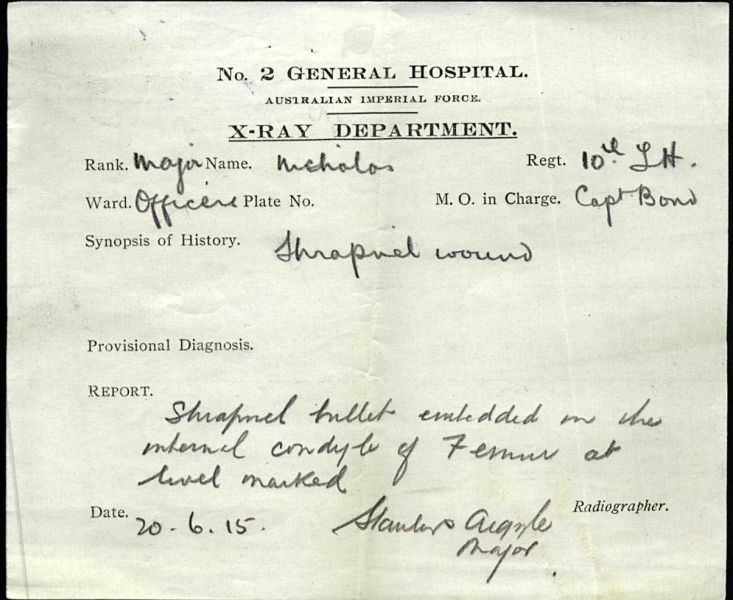 No. 2 GENERAL HOSPITAL.
AUSTRALIAN IMPERIAL FORCE.
X-RAY DEPARTMENT.
Rank. Major Name. Nicholas Regt. 10th L H.
Ward. Officers Plate No. M. O. in Charge. Capt Bond
Synopsis of History. Shrapnel wound
Provisional Diagnosis.
REPORT.
Shrapnel bullet embedded in the
internal condyle of Femur at
level marked
Date. 20.6.15. Stanley Argyle Radiographer.
Major